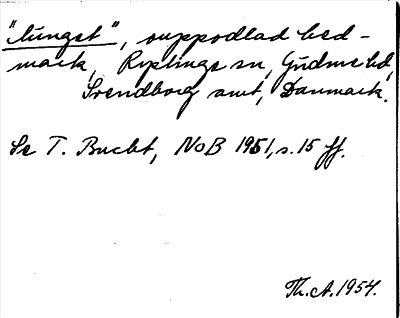 "lünget", uppodlad hed-
mark, Ryslinge sn, Gudme hd,
Svendborg amt, Danmark.
Se T. Bucht, NoB 1951, s. 15 ff.
Th. A. 1954.